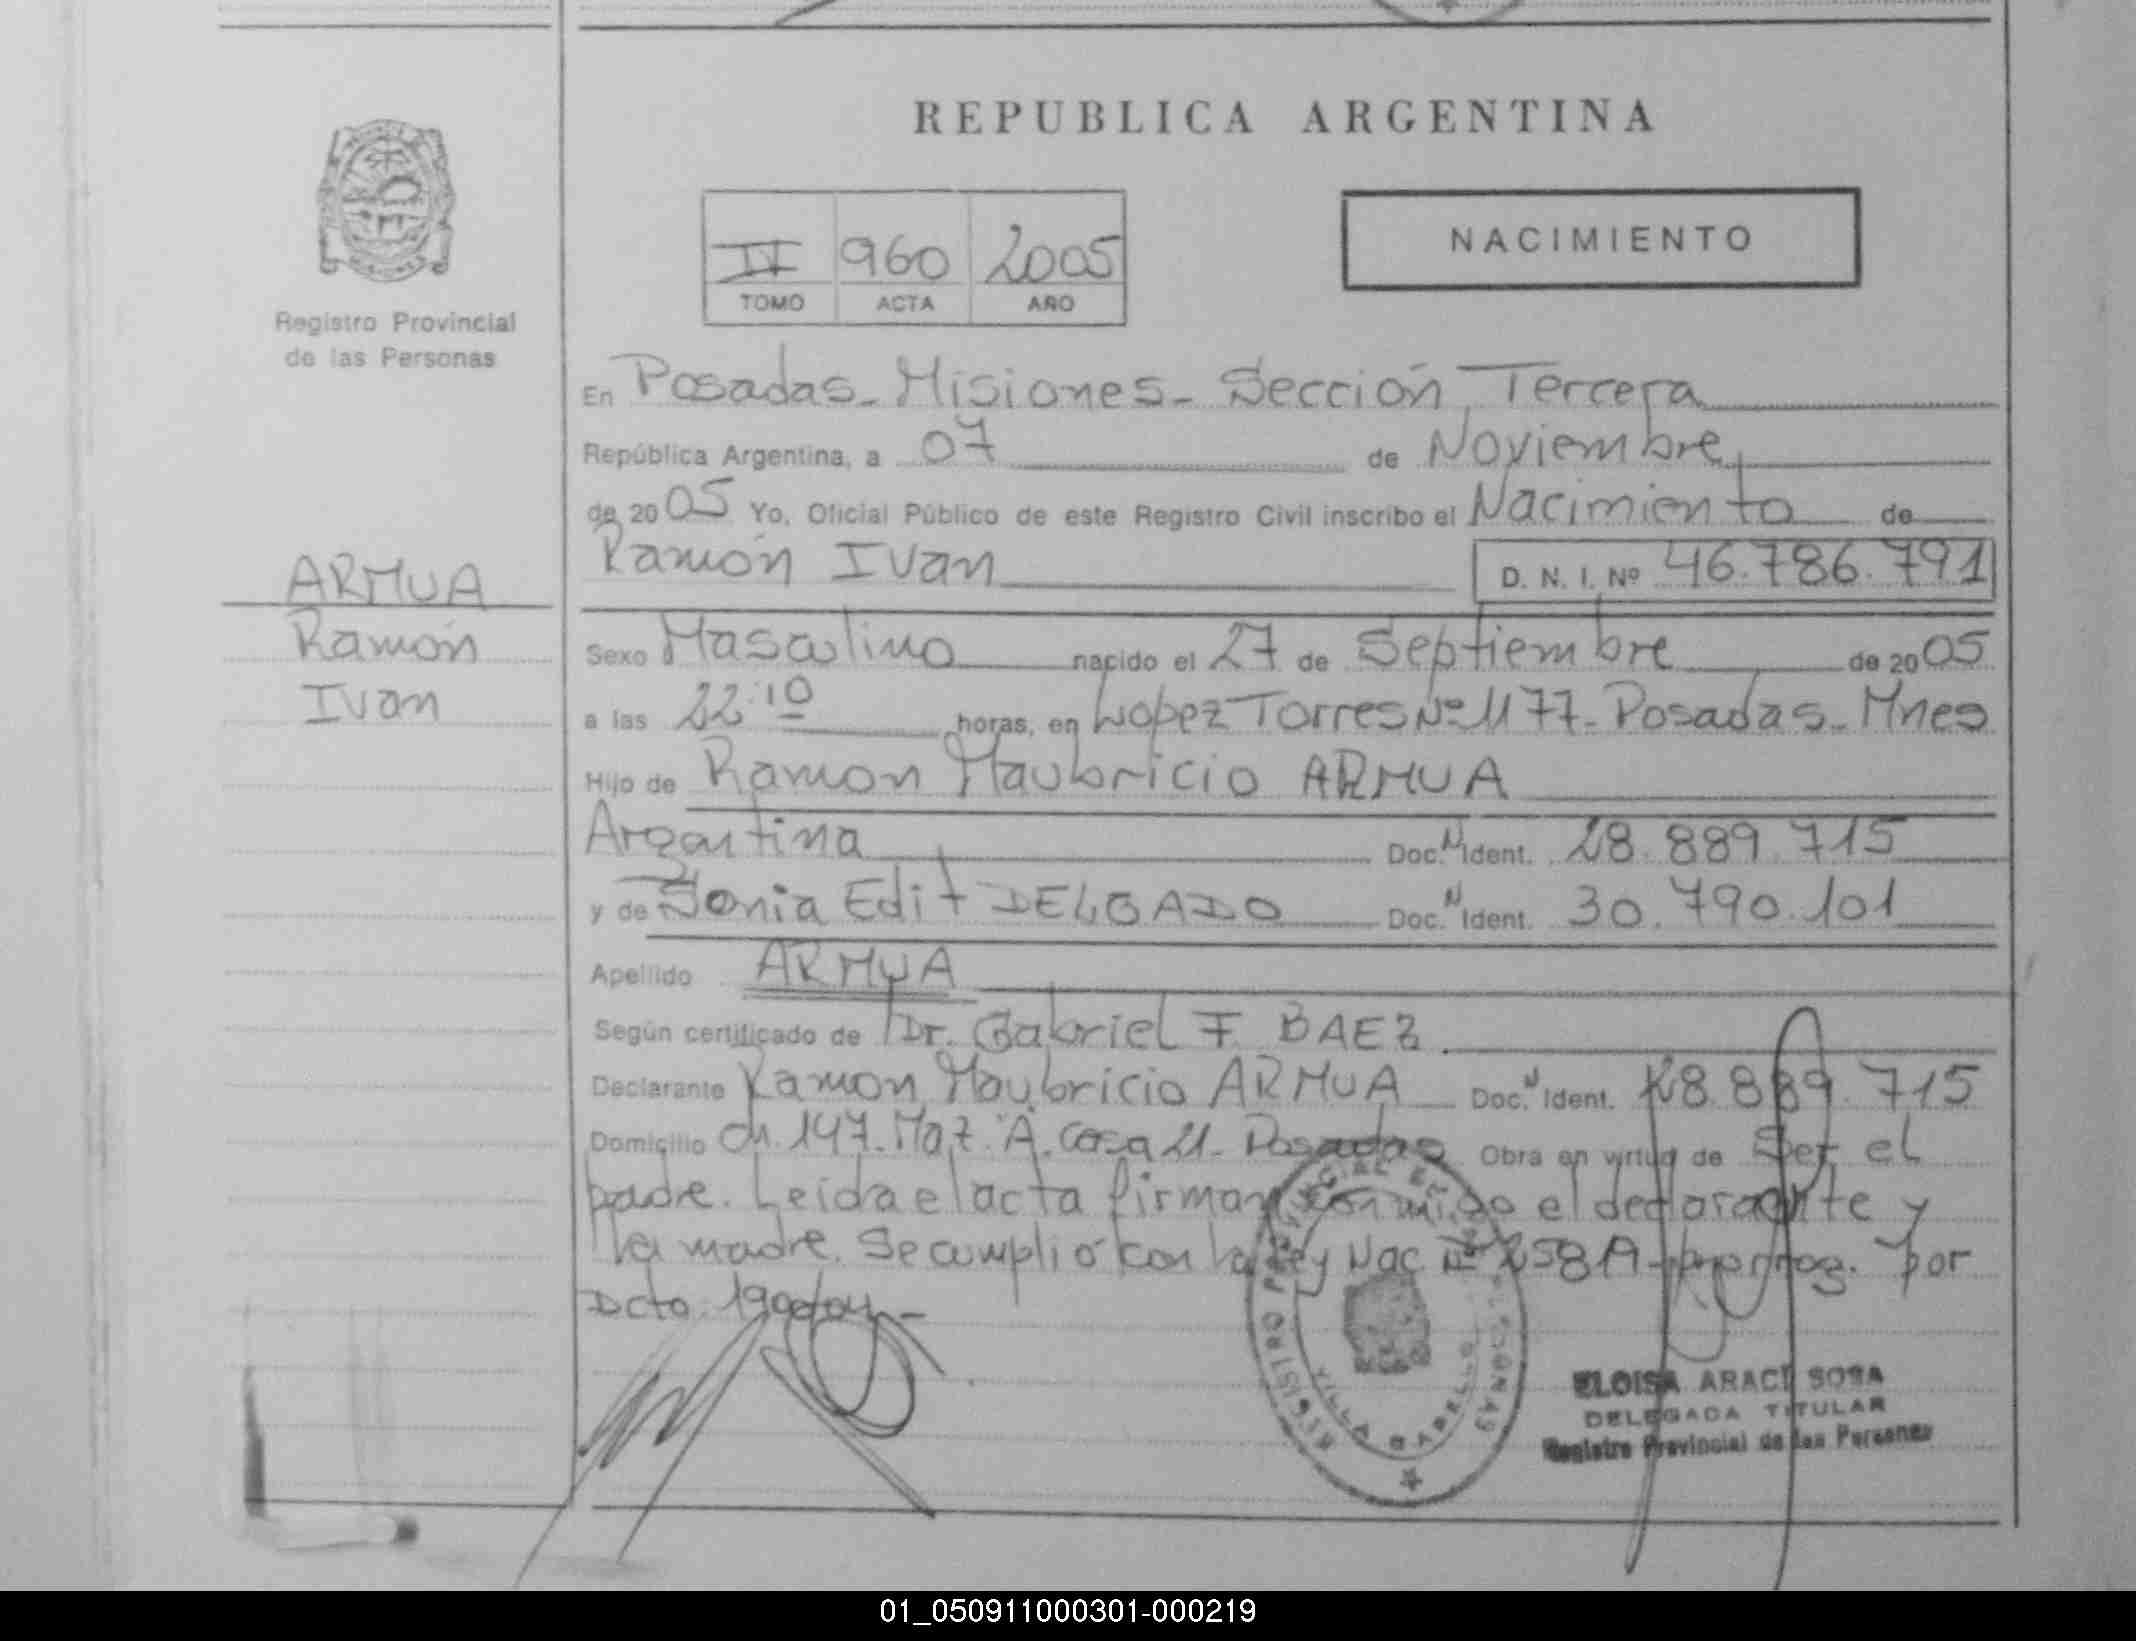 REPUBLICA ARGENTINA
II 960 2005
TOMO ACTA AÑO
NACIMIENTO
Registro Provincial
de las Personas
ARMUA
Ramón
Ivan
En Posadas - Misiones - Sección Tercera
República Argentina, a 07 de Noviembre
de 2005 Yo, Oficial Público de este Registro Civil inscribo el Nacimiento de
Ramón Ivan D. N. I. Nº 46.786.791
Sexo Masculino nacido el 27 de Septiembre de 2005
a las 22:10 horas, en Lopez Torres Nº 1177 - Posadas - Mnes
Hijo de Ramon Maubricio ARMUA
Argentina Doc. N Ident. 28.889.715
y de Sonia Edit DELGADO Doc. N Ident. 30.790.101
Apellido ARMUA
Según certificado de Dr. Gabriel F. BAEZ
Declarante Ramon Maubricio ARMUA Doc. N Ident. 28.889.715
Domicilio Ch. 147 - Maz. "A" Casa 21 - Posadas Obra en virtud de Ser el
padre. Leida el acta firman conmigo el declarante y
la madre. Se cumplió con la Ley Nac Nº por
Dcto.
REGISTRO
VILLA CABELLO
ELOISA ARACI SOSA
DELEGADA TITULAR
Registro Provincial de las Personas
01_050911000301-000219